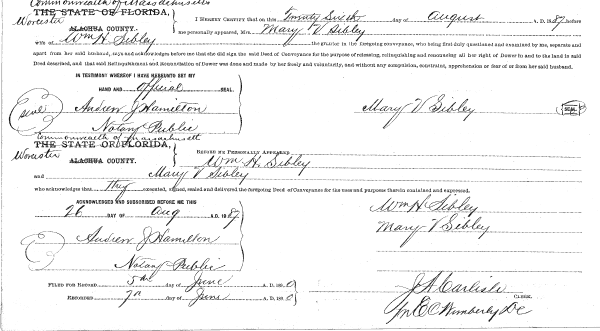 Commonwealth of Massachusetts
THE STATE OF FLORIDA,
Worcester
ALACHUA COUNTY.
I HEREBY CERTIFY that on this Twenty Sixth day of August A. D. 1887, before
me personally appeared, Mrs. Mary V Sibley
wife of Wm H. Sibley the grantor in the foregoing conveyance, who being first duly questioned and examined by me, separate and
apart from her said husband, says and acknowledges before me that she did sign the said Deed of Conveyance for the purpose of releasing, relinquishing and reconciling all her right of Dower in and to the land in said
Deed described, and that said Relinquishment and Renunciation of Dower was done and made by her freely and voluntarily, and without any compulsion, constraint, apprehension or fear of or from her said husband.
IN TESTIMONY WHEREOF I HAVE HEREUNTO SET MY
HAND AND official SEAL.
seal
Andrew J Hamilton
Notary Public
Mary V Sibley
SEAL
Commonwealth of Massachusetts
THE STATE OF FLORIDA,
Worcester
ALACHUA COUNTY.
BEFORE ME PERSONALLY APPEARED Wm H. Sibley
and Mary V Sibley
who acknowledges that they executed, signed, sealed and delivered the foregoing Deed of Conveyance for the uses and purposes therein contained and expressed.
ACKNOWLEDGED AND SUBSCRIBED BEFORE ME THIS
26 DAY OF Aug A. D. 1887
Andrew J Hamilton
Notary Public
Wm H. Sibley
Mary V Sibley
FILED FOR RECORD 5th day of June A. D. 1890
RECORDED 7th day of June A. D. 1890
J A Carlisle
CLERK.
Pr E C Wimberly DC